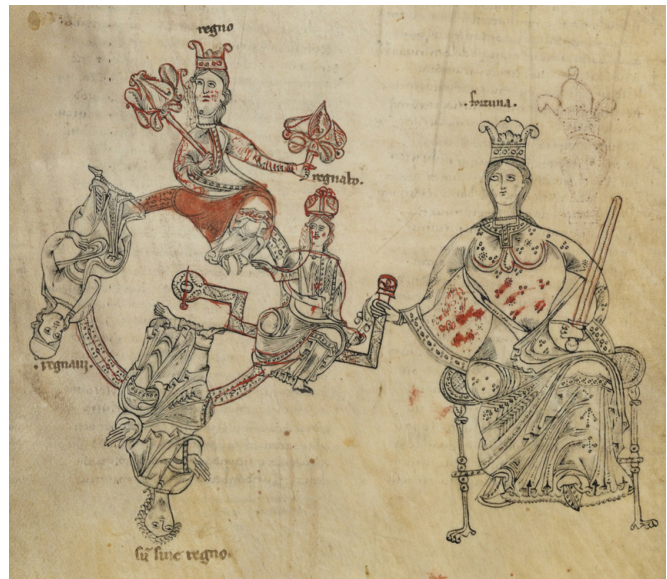 regno
.fortuna.
regnabo.
.regnaui.
sū sine regno.